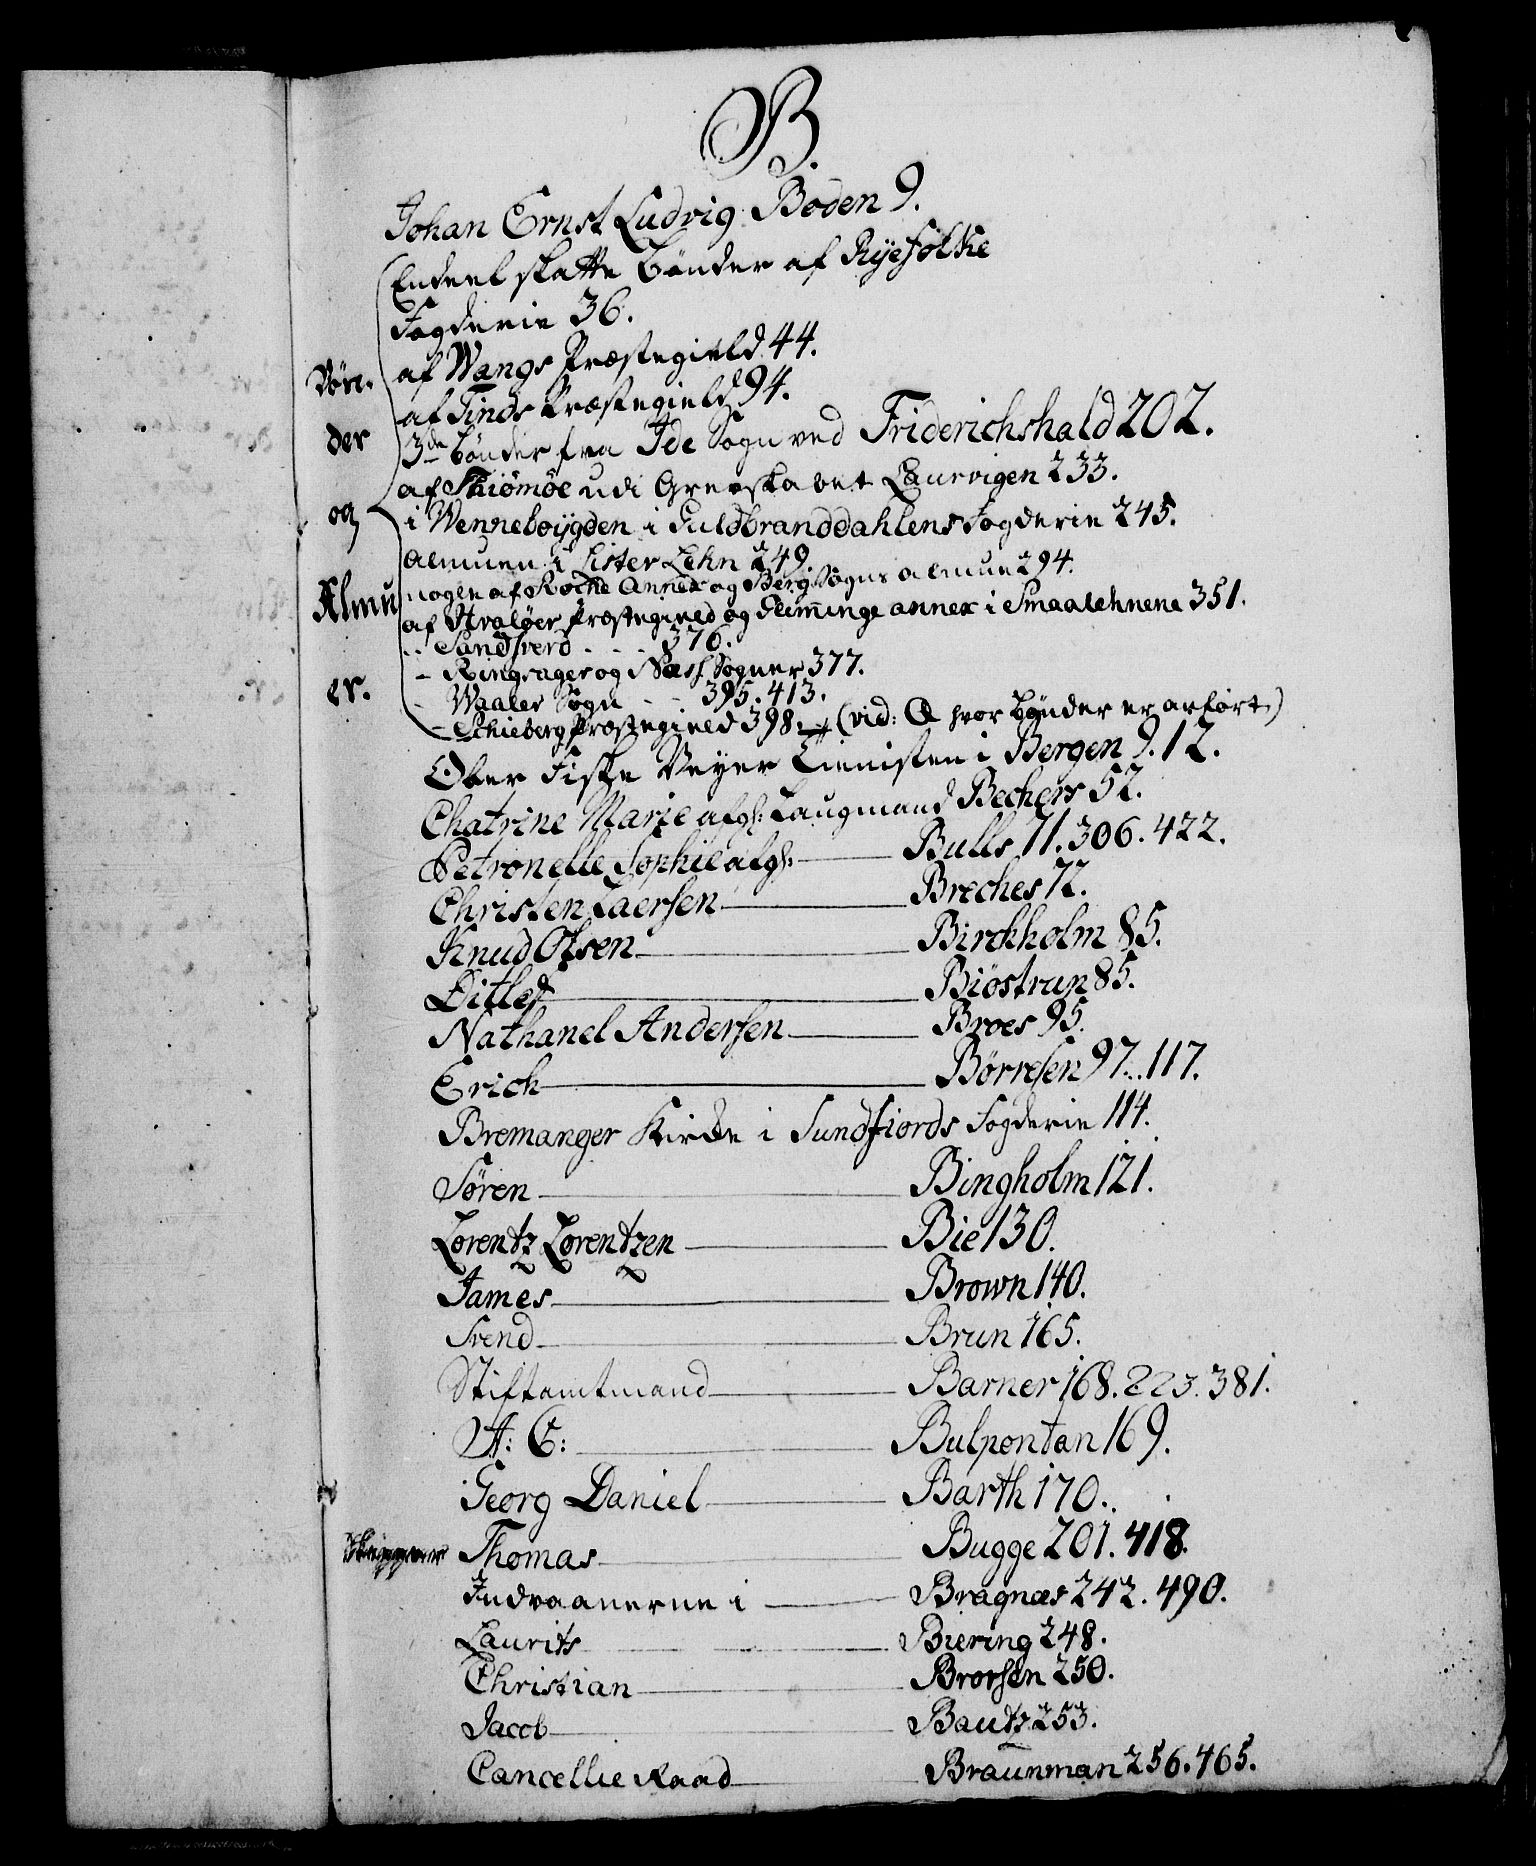 B.
Johan Ernst Ludvig Boden 9.
Endeel skatte bønder af Ryefølke
Fogderie 36.
af Wangs Præstegield 44.
Bøn-
af Tinds Præstegield 94.
3de bønder fra Ide Sogn ved Friderichshald 202.
der
af Thiømöe udi Grevskabet Laurvigen 233.
i Wenneboÿgden i Guldbranddahlens Fogderie 245.
og
almuen i Lister Lehn 249.
nogle af Rocke Annex og Berg Sogns almue 294.
Almu
af Hvaløer Præstegield og Glimminge annex i Smaalehnene 351.
-- Sandsverd - - - 376.
- Ringsager og Næss Sogner 377.
er.
- Waaler Sogn - - 395. 413.
- Schieberg Præstegield 398. (vid: A hvor bønder er anført)
Ober Fiske Veyer Tienisten i Bergen 9. 12.
Chatrine Marie afg: Laugmand Bechers 52.
Petronelle Sophie afg: Bulls 71. 306. 422.
Christen Laersen Breches 72.
Knud Olsen Birchholm 85.
Ditlef Biöstrup 85.
Nathanel Andersen Broes 95.
Erich Børresen 97. 117.
Bremanger Kirke i Sundfiords Fogderie 114.
Søren Bingholm 121.
Lorentz Lorentzen Bie 130.
James Brown 140.
Svend Brun 165.
Stiftamtmand Barner 168. 223. 381.
A: C: Bulpontan 169.
Georg Daniel Barth 170.
Thomas Bugge 201. 418.
Indvaanerne i Bragnæs 242. 490.
Laurits Biering 248.
Christian Brorsen 250.
Jacob Bautz 253.
Cancellie Raad Braunman 256. 465.